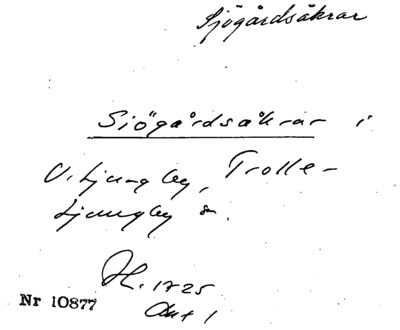 Sjögårdsåkrar
Sjögårdsåkrar i
V. Ljungby, Trolle-
Ljungby sn.
H. 1725
Akt 1
Nr 10877